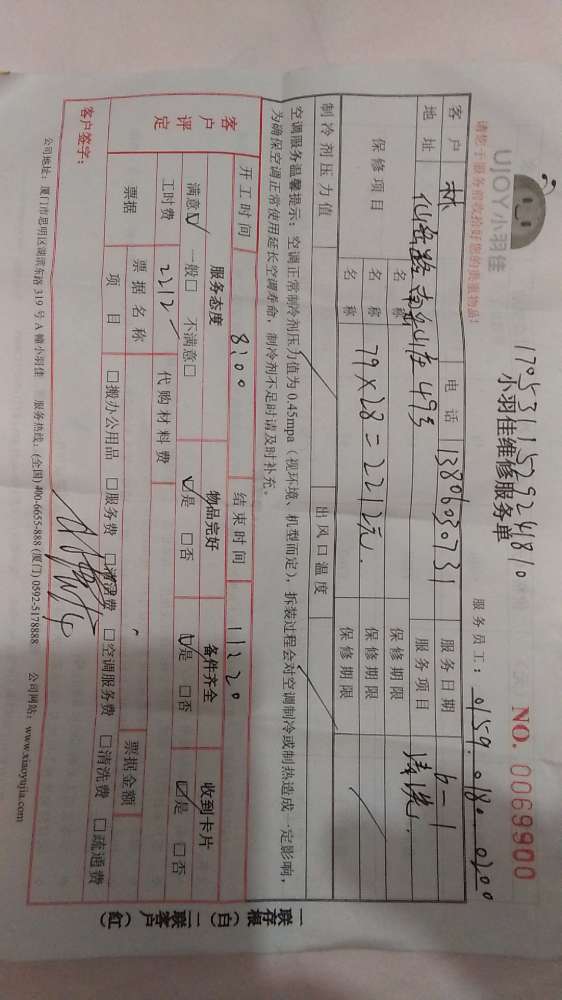 UJOY小羽佳
请您于服务前收拾好您的贵重物品!
170531152924810
小羽佳维修服务单
NO. 0069900
服务员工: 0159. 0180 0200
客户 林 电话 13806030731 服务日期 6-1
地址 仙岳路 南山庄 493 服务项目 清洗.
保修项目 名称 保修期限
名称 79×28=2212元. 保修期限
名称 保修期限
制冷剂压力值 出风口温度
空调服务温馨提示:空调正常制冷剂压力值为 0.45mpa(视环境、机型而定),拆装过程会对空调制冷或制热造成一定影响,
为确保空调正常使用延长空调寿命,制冷剂不足时请及时补充。
开工时间 8:00 结束时间 11:20
客户评定 服务态度 物品完好 备件齐全 收到卡片
满意☑ 一般□ 不满意□ ☑是 □否 ☑是 □否 ☑是 □否
工时费 2212 代购材料费
票据 票据名称 票据金额
项目 □搬办公用品 □服务费 □清洁费 □空调服务费 □清洗费 □疏通费
客户签字:
公司地址:厦门市思明区湖滨东路 319 号 A 幢小羽佳 服务热线:(全国) 400-6655-888 (厦门) 0592-5178888 公司网站:www.xiaoyujia.com
一联存根(白) 二联客户(红)